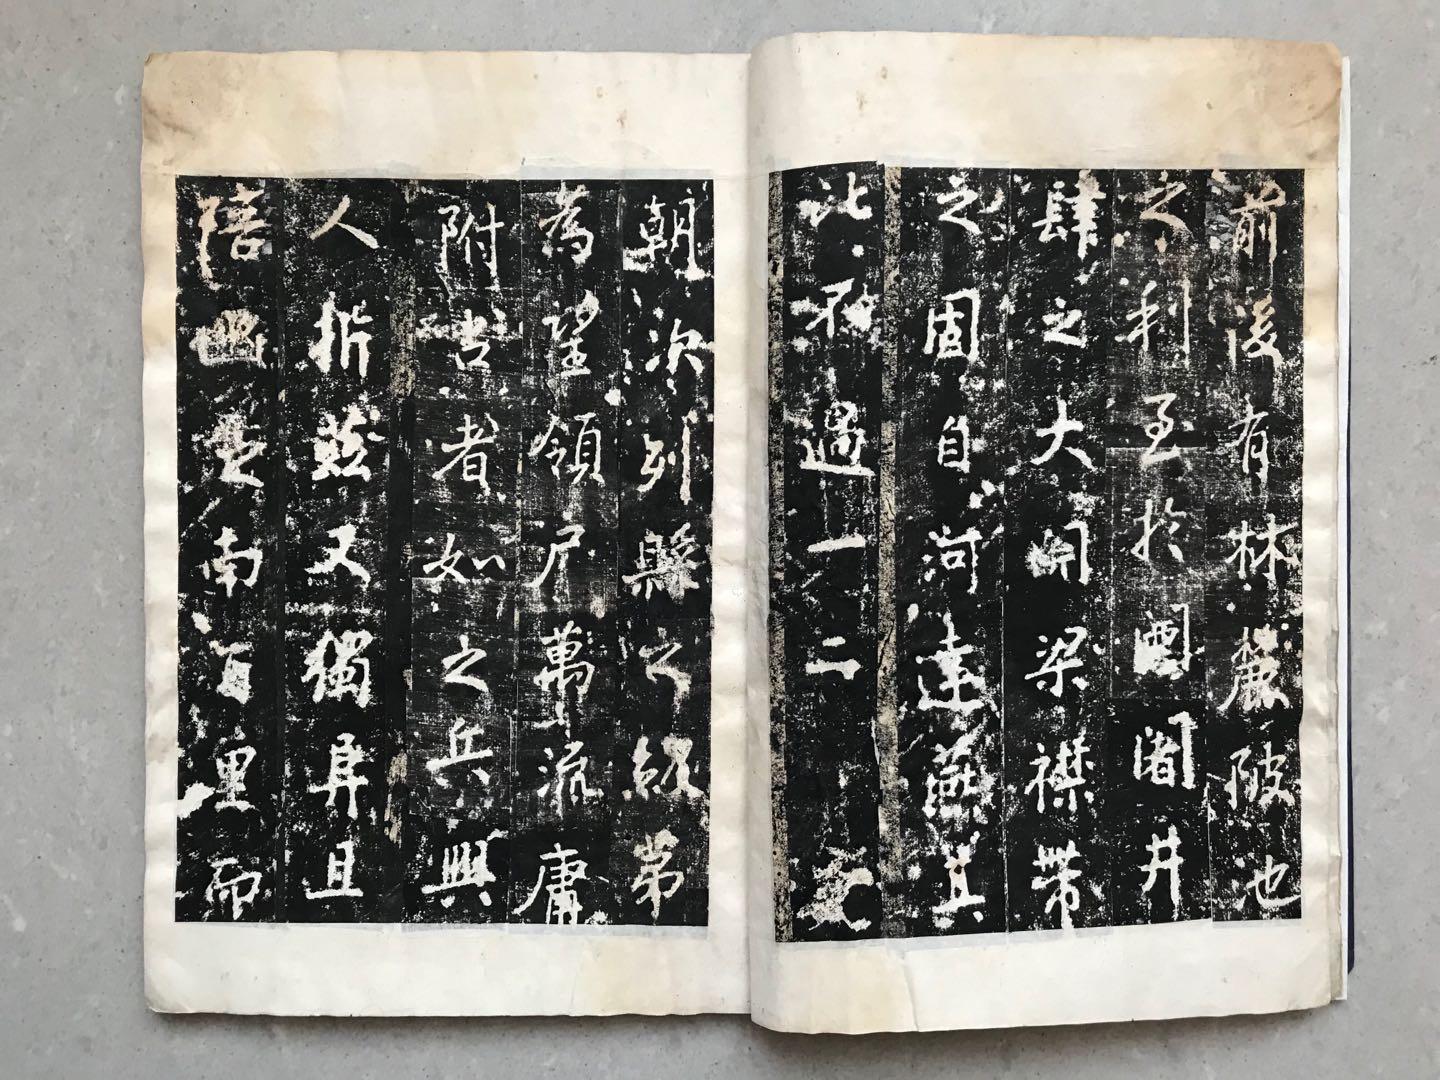 前後有林麓陂池
之利至於闤闠井
肆之大開梁襟帶
之固自河達燕其
比不過一二元
朝次列縣之級第
為望領戶萬流庸
附占者如之兵興
人拆裂又獨阜且
楚南百里而